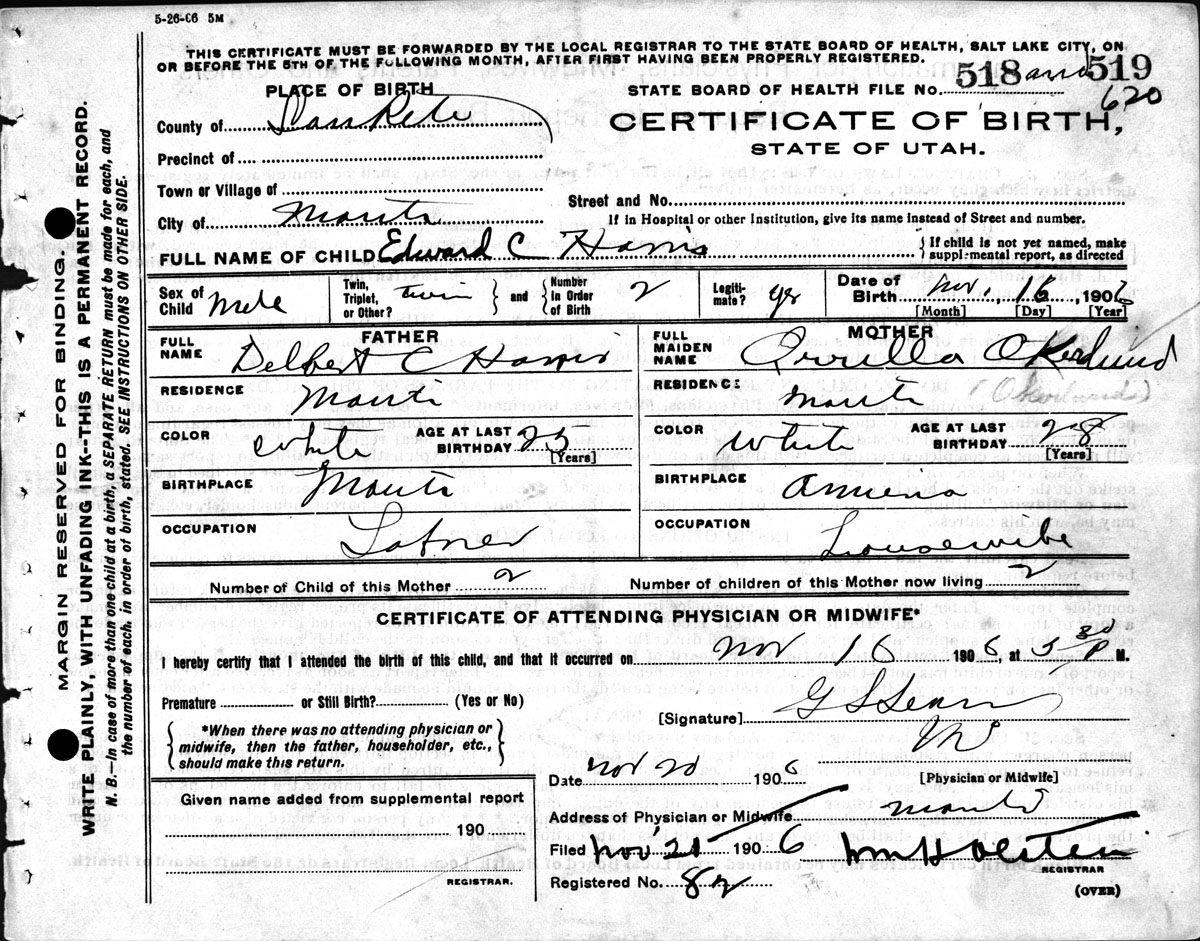 5-26-06 5M
THIS CERTIFICATE MUST BE FORWARDED BY THE LOCAL REGISTRAR TO THE STATE BOARD OF HEALTH, SALT LAKE CITY, ON
OR BEFORE THE 5TH OF THE FOLLOWING MONTH, AFTER FIRST HAVING BEEN PROPERLY REGISTERED.
STATE BOARD OF HEALTH FILE No. 518 and 519
620
PLACE OF BIRTH
CERTIFICATE OF BIRTH,
STATE OF UTAH.
County of SanPete
Precinct of
Town or Village of
Street and No.
City of Manti
If in Hospital or other Institution, give its name instead of Street and number.
FULL NAME OF CHILD Edward C Harris
If child is not yet named, make
supplemental report, as directed
Sex of Child Male
Twin, Triplet, or Other? twin
and Number in Order of Birth 2
Legitimate? yes
Date of Birth Nov. 16, 1906
[Month] [Day] [Year]
FATHER
FULL NAME Delbert C Harris
RESIDENCE Manti
COLOR White AGE AT LAST BIRTHDAY 23
[Years]
BIRTHPLACE Manti
OCCUPATION
MOTHER
FULL MAIDEN NAME Orvilla Okerlund
RESIDENCE Manti
COLOR White AGE AT LAST BIRTHDAY 28
[Years]
BIRTHPLACE
OCCUPATION Housewife
Number of Child of this Mother 2 Number of children of this Mother now living 2
CERTIFICATE OF ATTENDING PHYSICIAN OR MIDWIFE*
I hereby certify that I attended the birth of this child, and that it occurred on Nov 16 1906, at 5 30 P M.
Premature or Still Birth? (Yes or No)
[Signature]
*When there was no attending physician or
midwife, then the father, householder, etc.,
should make this return.
Date Nov 20 1906
[Physician or Midwife]
Given name added from supplemental report
190
REGISTRAR.
Address of Physician or Midwife Manti
Filed Nov 21 1906
REGISTRAR
Registered No. 82
(OVER)
MARGIN RESERVED FOR BINDING.
WRITE PLAINLY, WITH UNFADING INK--THIS IS A PERMANENT RECORD.
N. B.—In case of more than one child at a birth, a SEPARATE RETURN must be made for each, and
the number of each, in order of birth, stated. SEE INSTRUCTIONS ON OTHER SIDE.